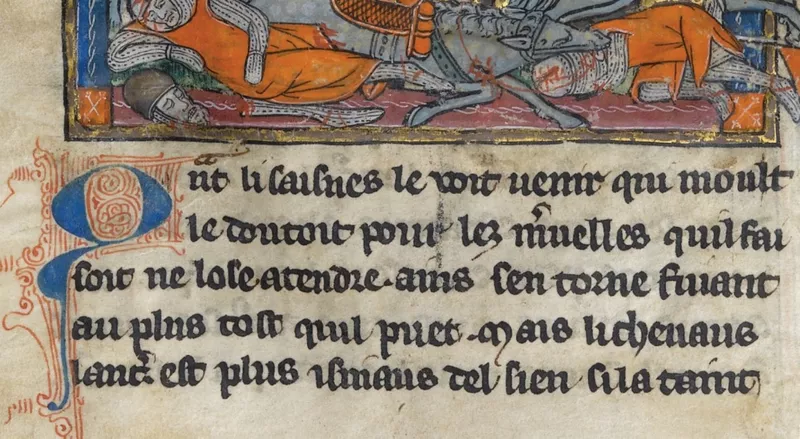 Qᵃnt li saisnes le voit uenir qui moult
le doutoit pour les mͥuelles quil fai
soit ne lose atendre. ains sen torne fuiant
au plus tost quil puet. Mais li cheuaus
lanc̾ est plus isniaus del sien si la taint